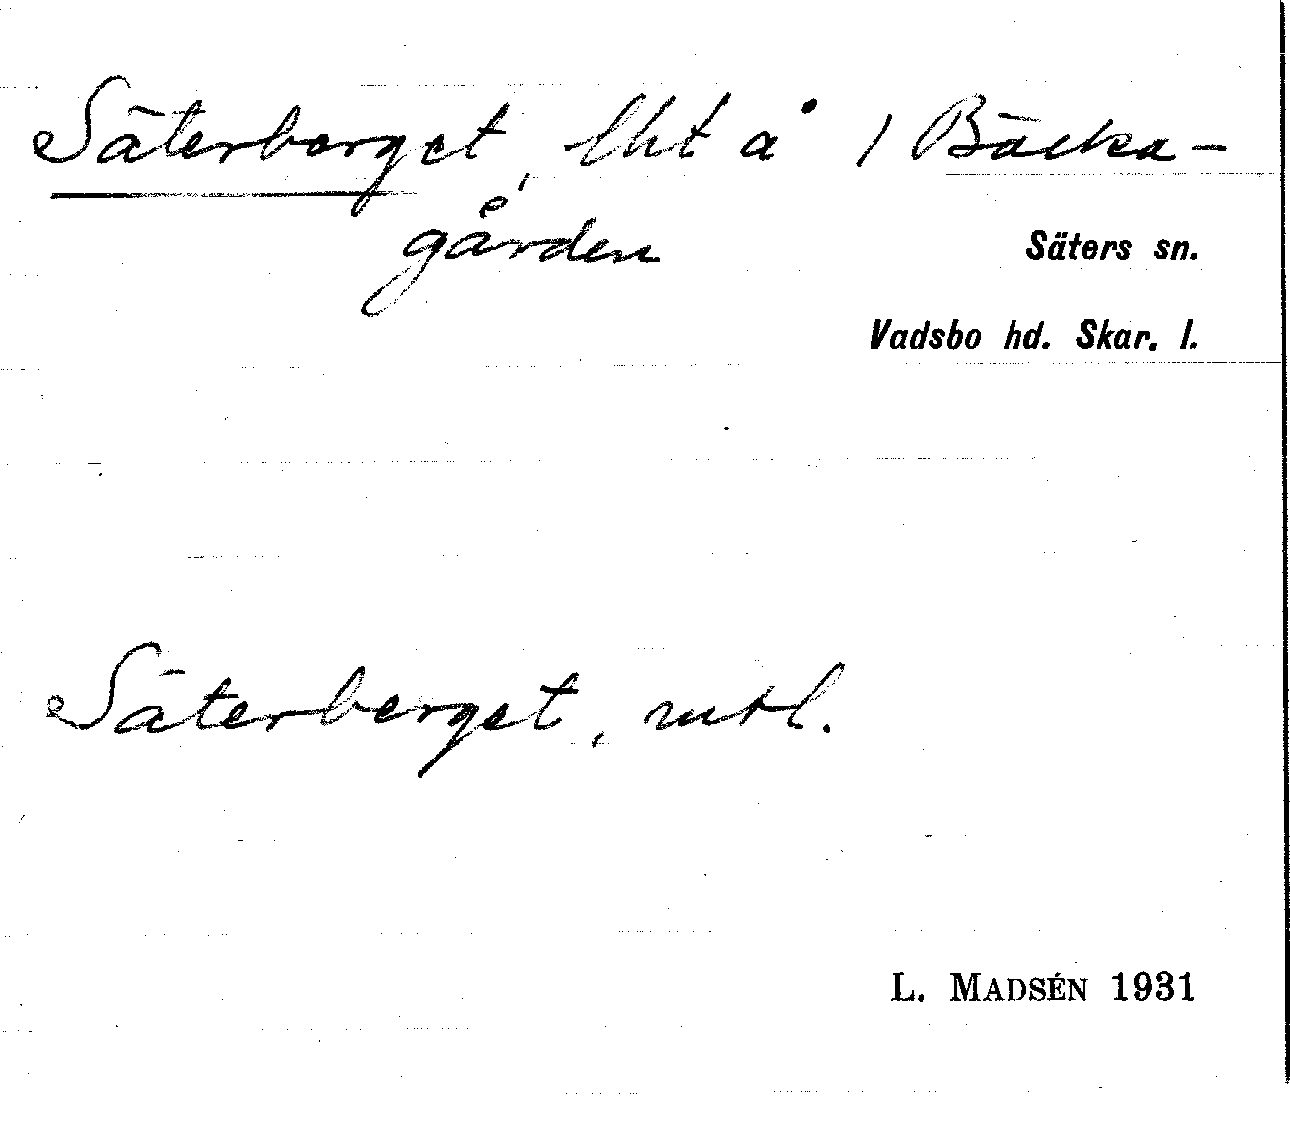 Säterberget, lht å 1 Bäcka-
gården
Säters sn.
Vadsbo hd. Skar. l.
Säterberget, mtl.
L. MADSÉN 1931